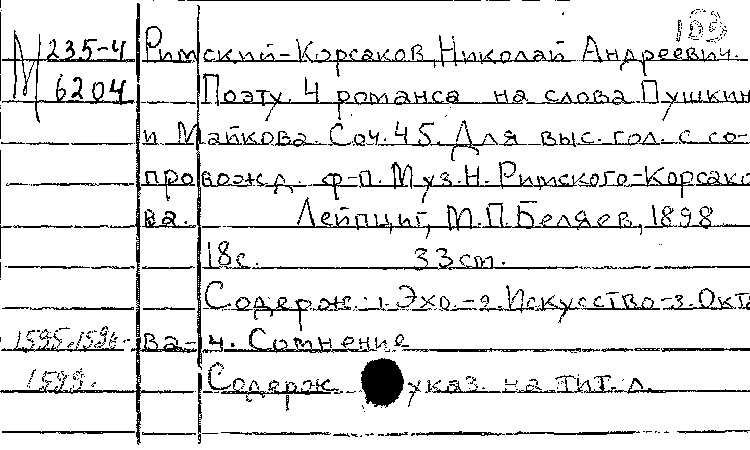 153
М 235-4 Римский-Корсаков, Николай Андреевич.
6204 Поэту. 4 романса на слова Пушкин
и Майкова. Соч. 45. Для выс. гол. с со-
провожд. ф-п. Муз. Н. Римского-Корсако
ва. Лейпциг, М.П. Беляев, 1898
18с. 33cm.
Содерж.: 1. Эхо.-2. Искусство-3. Окта
1595.1596. ва-4. Сомнение
1599. Содерж. указ. на тит. л.